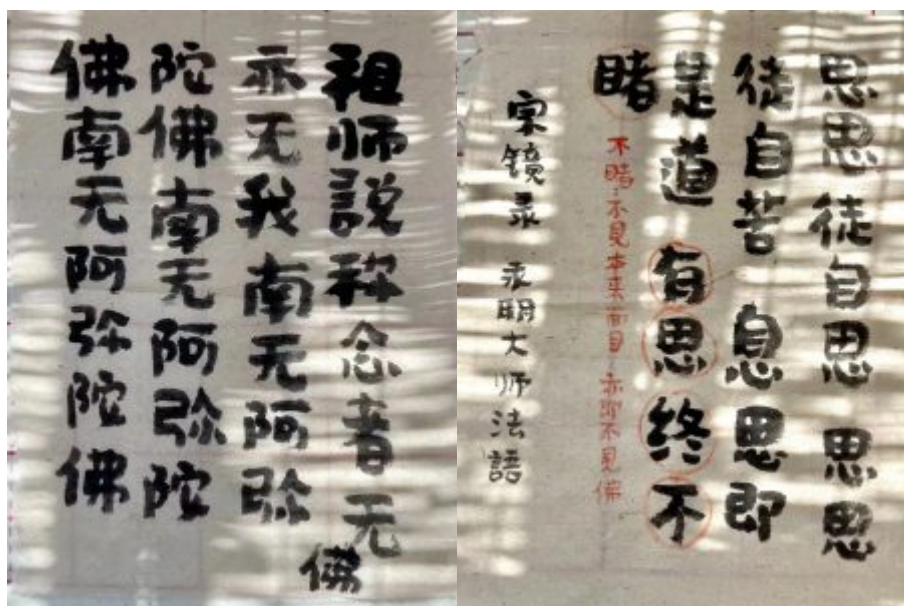 思思徒自思 思思
徒自苦 息思即
是道 有思终不
睹
不睹:不見本来面目 亦即不見佛
宗镜录 永明大师法語
祖师説称念者无佛
亦无我南无阿弥
陀佛南无阿弥陀
佛南无阿弥陀佛